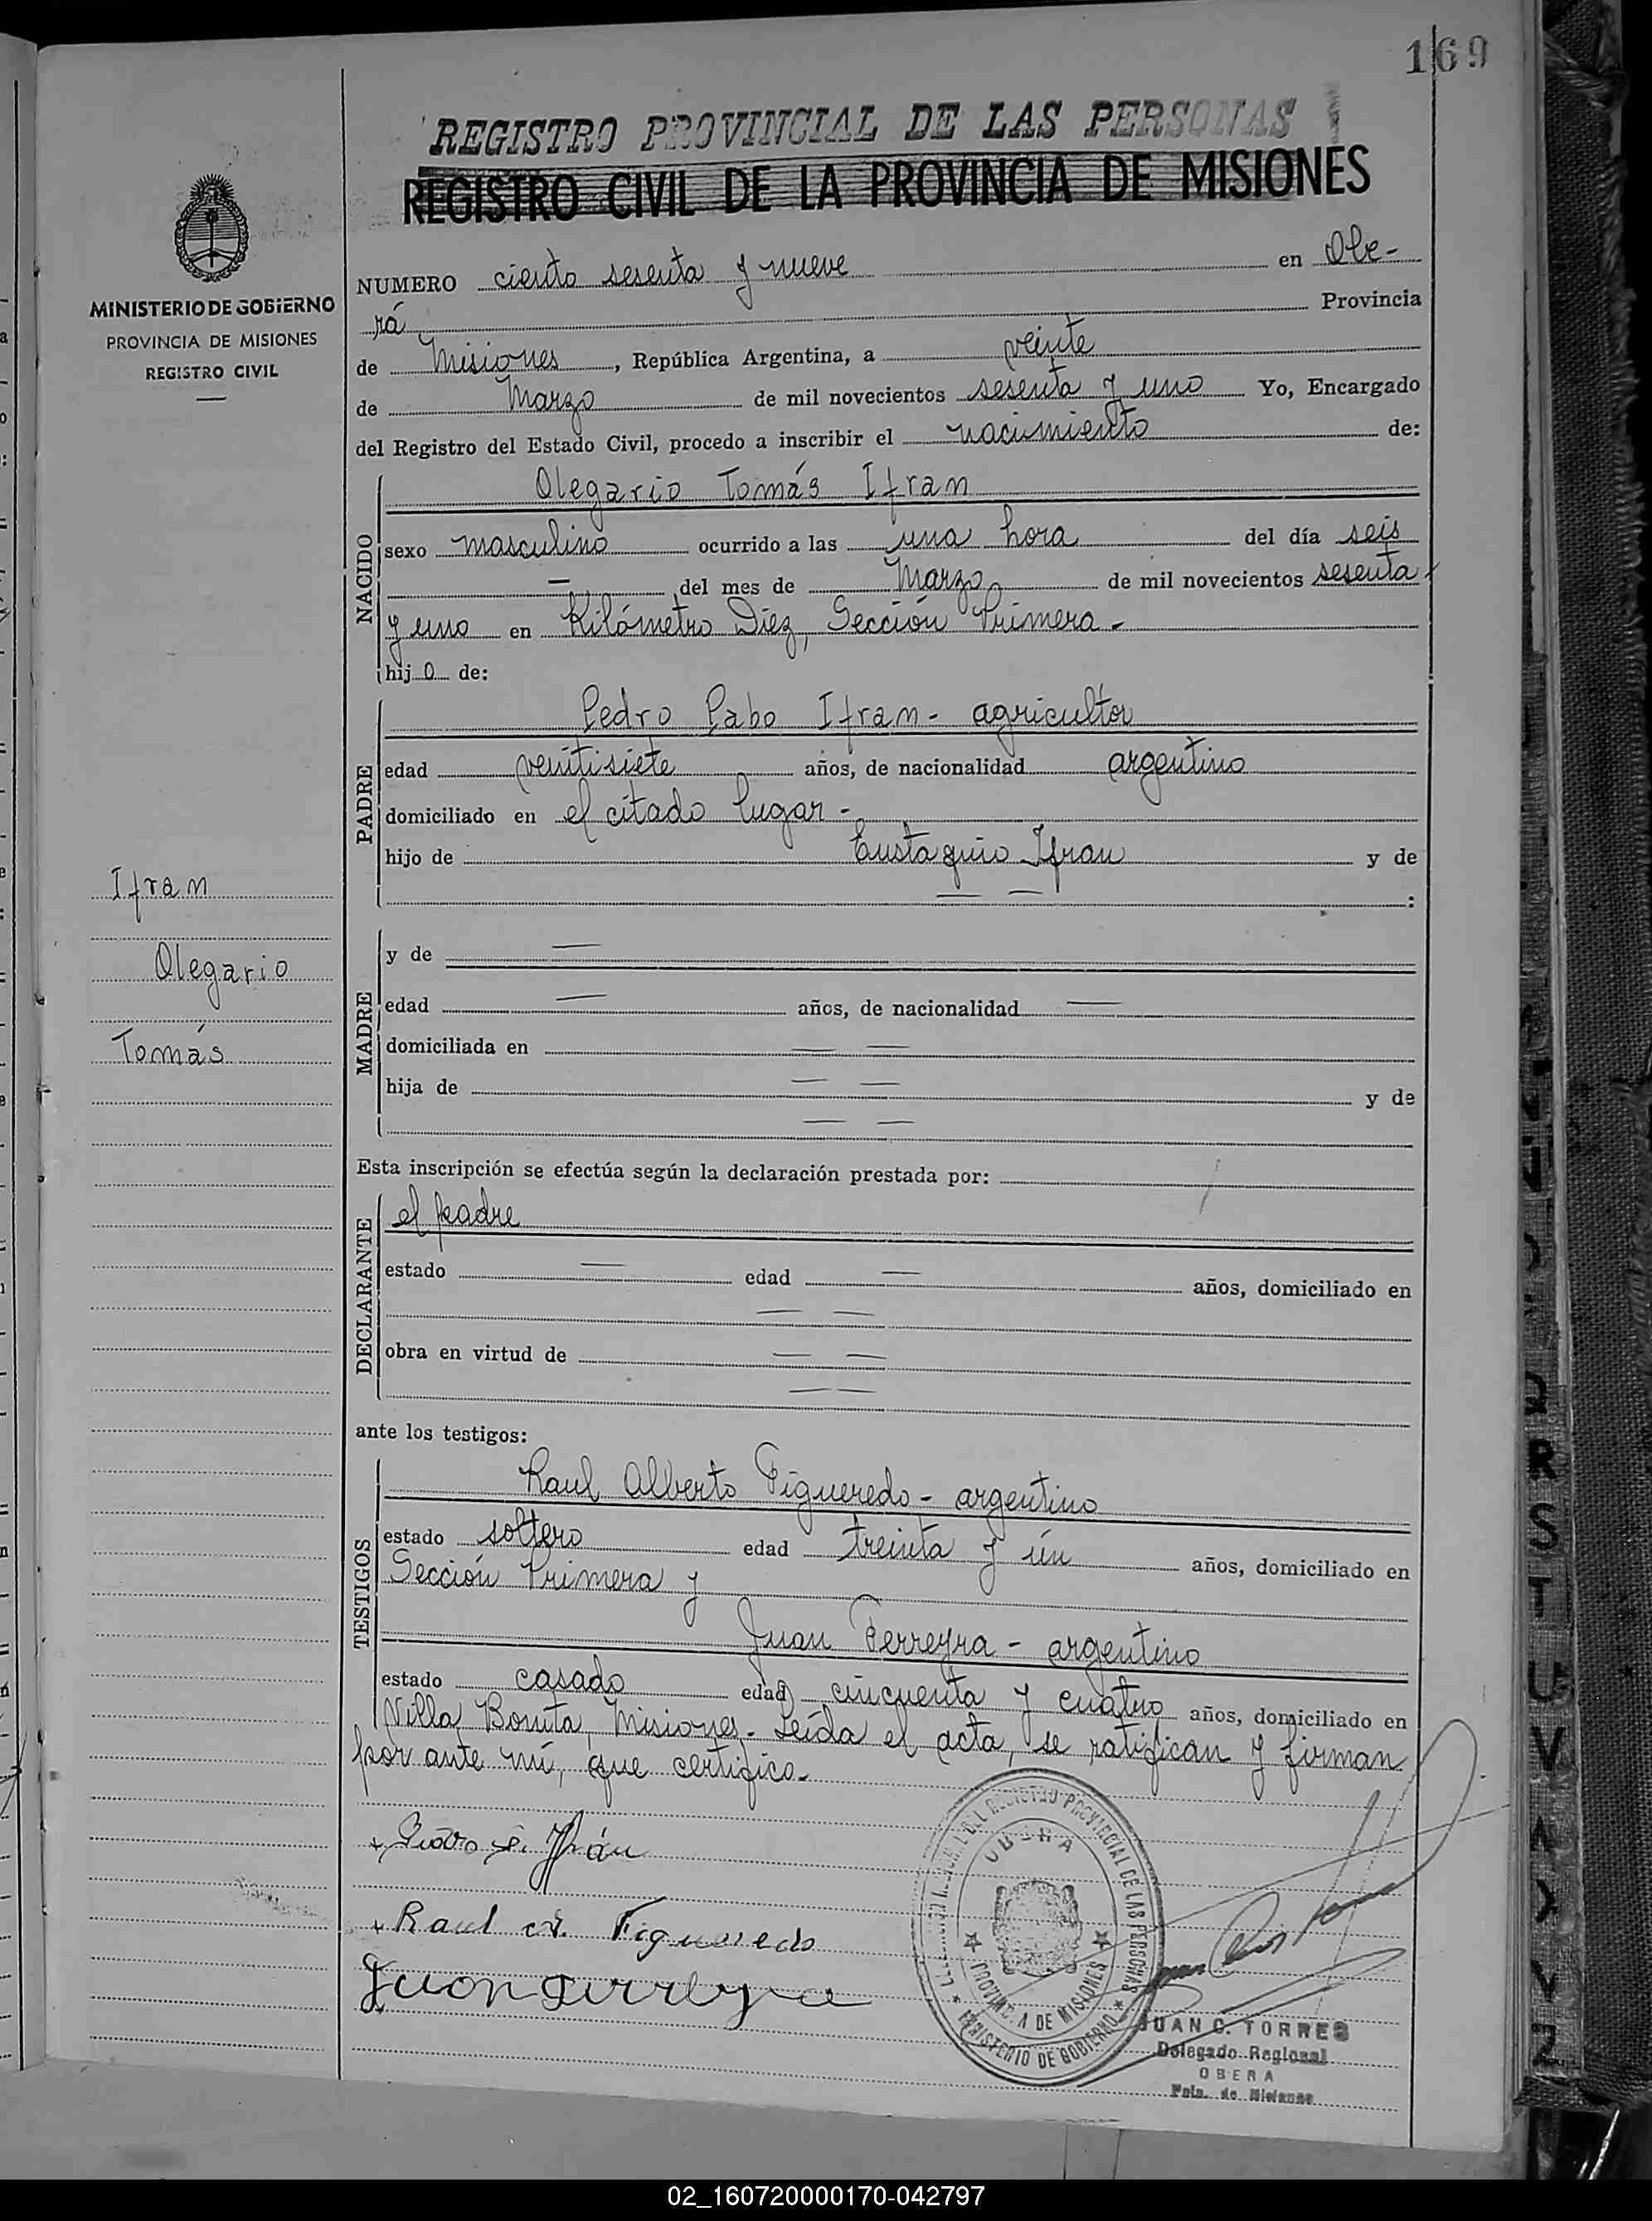 169
REGISTRO PROVINCIAL DE LAS PERSONAS
REGISTRO CIVIL DE LA PROVINCIA DE MISIONES
MINISTERIO DE GOBIERNO
PROVINCIA DE MISIONES
REGISTRO CIVIL
NUMERO ciento sesenta y nueve en Obe-
rá Provincia
de Misiones, República Argentina, a veinte
de Marzo de mil novecientos sesenta y uno Yo, Encargado
del Registro del Estado Civil, procedo a inscribir el nacimiento de:
NACIDO
Olegario Tomás Ifran
sexo masculino ocurrido a las una hora del día seis
— del mes de Marzo de mil novecientos sesenta
y uno en Kilómetro Diez, Sección Primera -
hijo de:
PADRE
Pedro Pabo Ifran - agricultor
edad veintisiete años, de nacionalidad argentino
domiciliado en el citado lugar -
hijo de Eustaquio Ifran y de
— — :
Ifran
Olegario
Tomás
MADRE
y de —
edad — años, de nacionalidad —
domiciliada en — —
hija de — — y de
— —
Esta inscripción se efectúa según la declaración prestada por:
DECLARANTE
el padre
estado — edad — años, domiciliado en
— —
obra en virtud de — —
— —
ante los testigos:
TESTIGOS
Raul Alberto Figueredo - argentino
estado soltero edad treinta y ún años, domiciliado en
Sección Primera y
Juan Ferreyra - argentino
estado casado edad cincuenta y cuatro años, domiciliado en
Villa Bonita, Misiones - Leída el acta, se ratifican y firman
por ante mí, que certifico -
Pedro P. Ifrán
Raul A. Figueredo
Juan Ferreyra
REGISTRO PROVINCIAL DE LAS PERSONAS
OBERA
PROVINCIA DE MISIONES
MINISTERIO DE GOBIERNO
JUAN C. TORRES
Delegado Regional
OBERA
Pcia. de Misiones
R
S
T
U
V
Y
Z
02_160720000170-042797